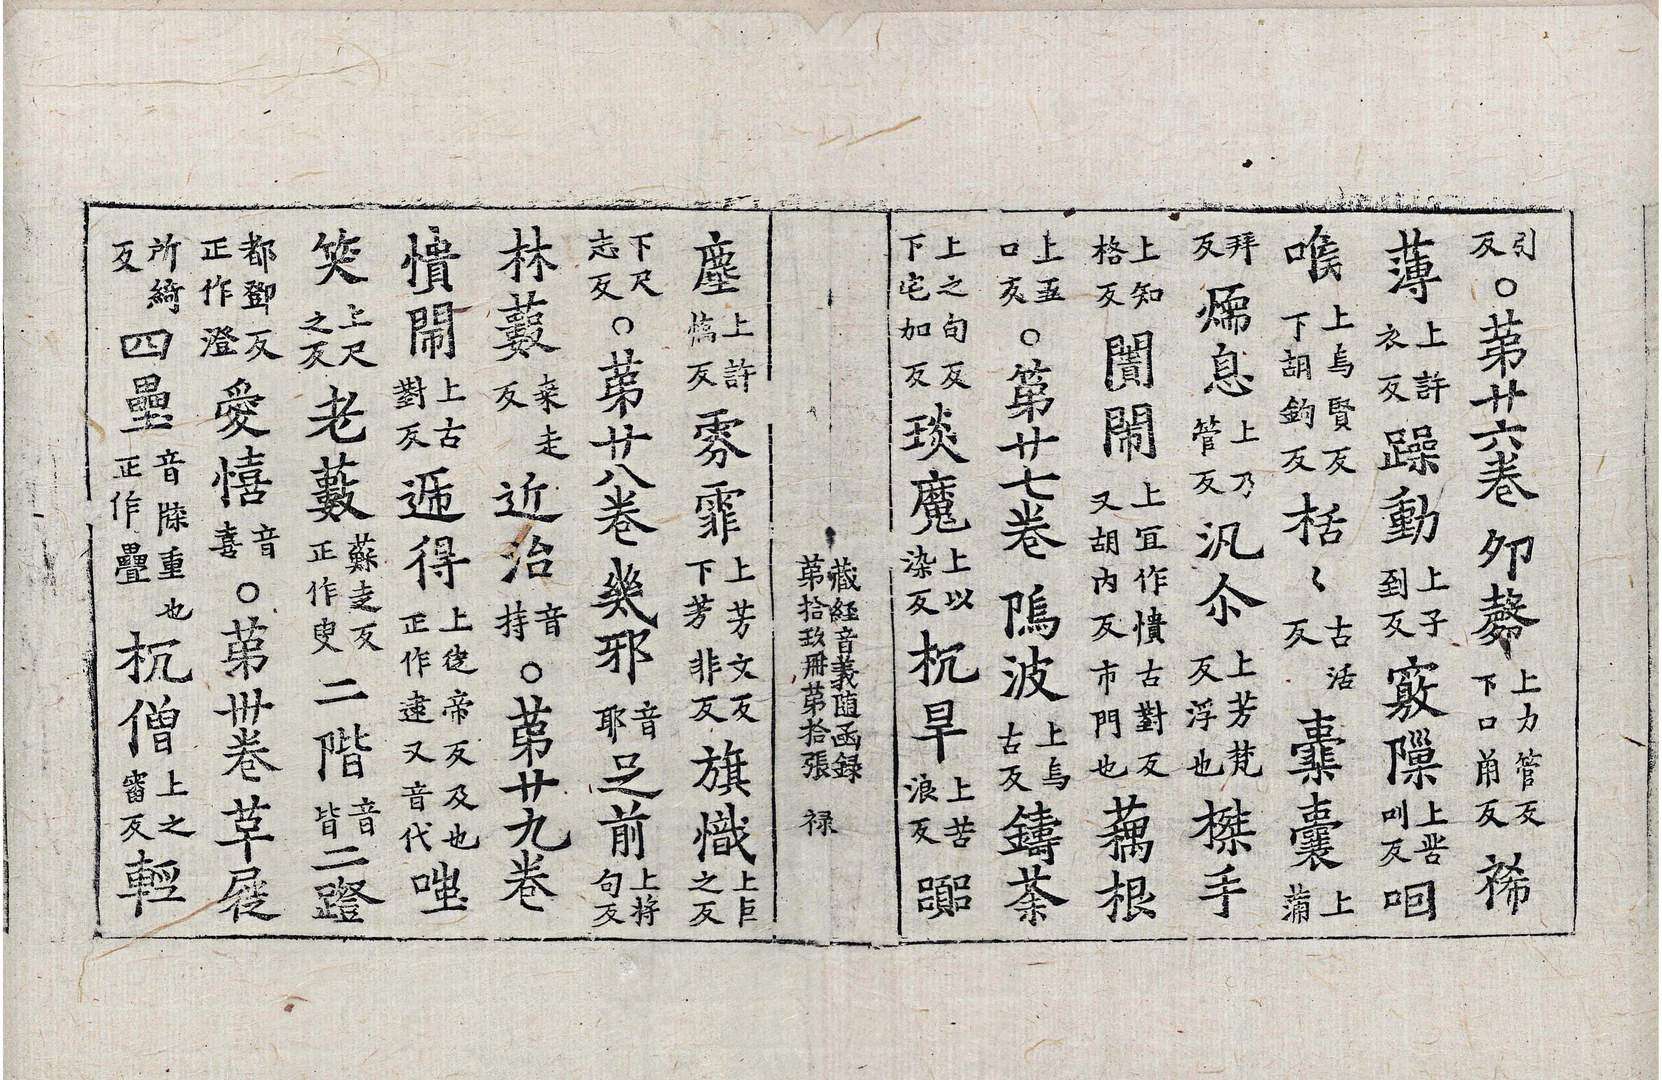 引反○苐廿六卷 夘㲉上力管反下口角反 裖
薄上許衣反 躁動上子到反 竅隟上苦叫反 咽
喉上烏賢反下胡鉤反 栝〻古活反 橐囊上蒲
拜反 煗息上乃管反 汎尒上芳梵反浮也 㯼手
上知格反 闠閙上冝作憒古對反又胡内反市門也 藕根
上五口反○第廿七卷 隖波上烏古反 鑄荼
上之旬反下宅加反 琰魔上以染反 抗旱上苦浪反 嚻
藏經音義随函録
第拾玖冊第拾張 禄
塵上許憍反 雰霏上芳文反下芳非反 旗幟上巨之反
下尺志反○苐廿八卷 幾邪音耶 足前上将句反
林藪桒走反 近治音持○苐廿九卷
憒閙上古對反 遞得上徒帝反及也正作逮又音代 嗤
笑上尺之反 老藪蘇走反正作叟 二階音皆 二蹬
都鄧反正作澄 愛憘音喜○苐卅卷 草屣
所綺反 四壘音牒重也正作疊 抗僧上之審反 輕